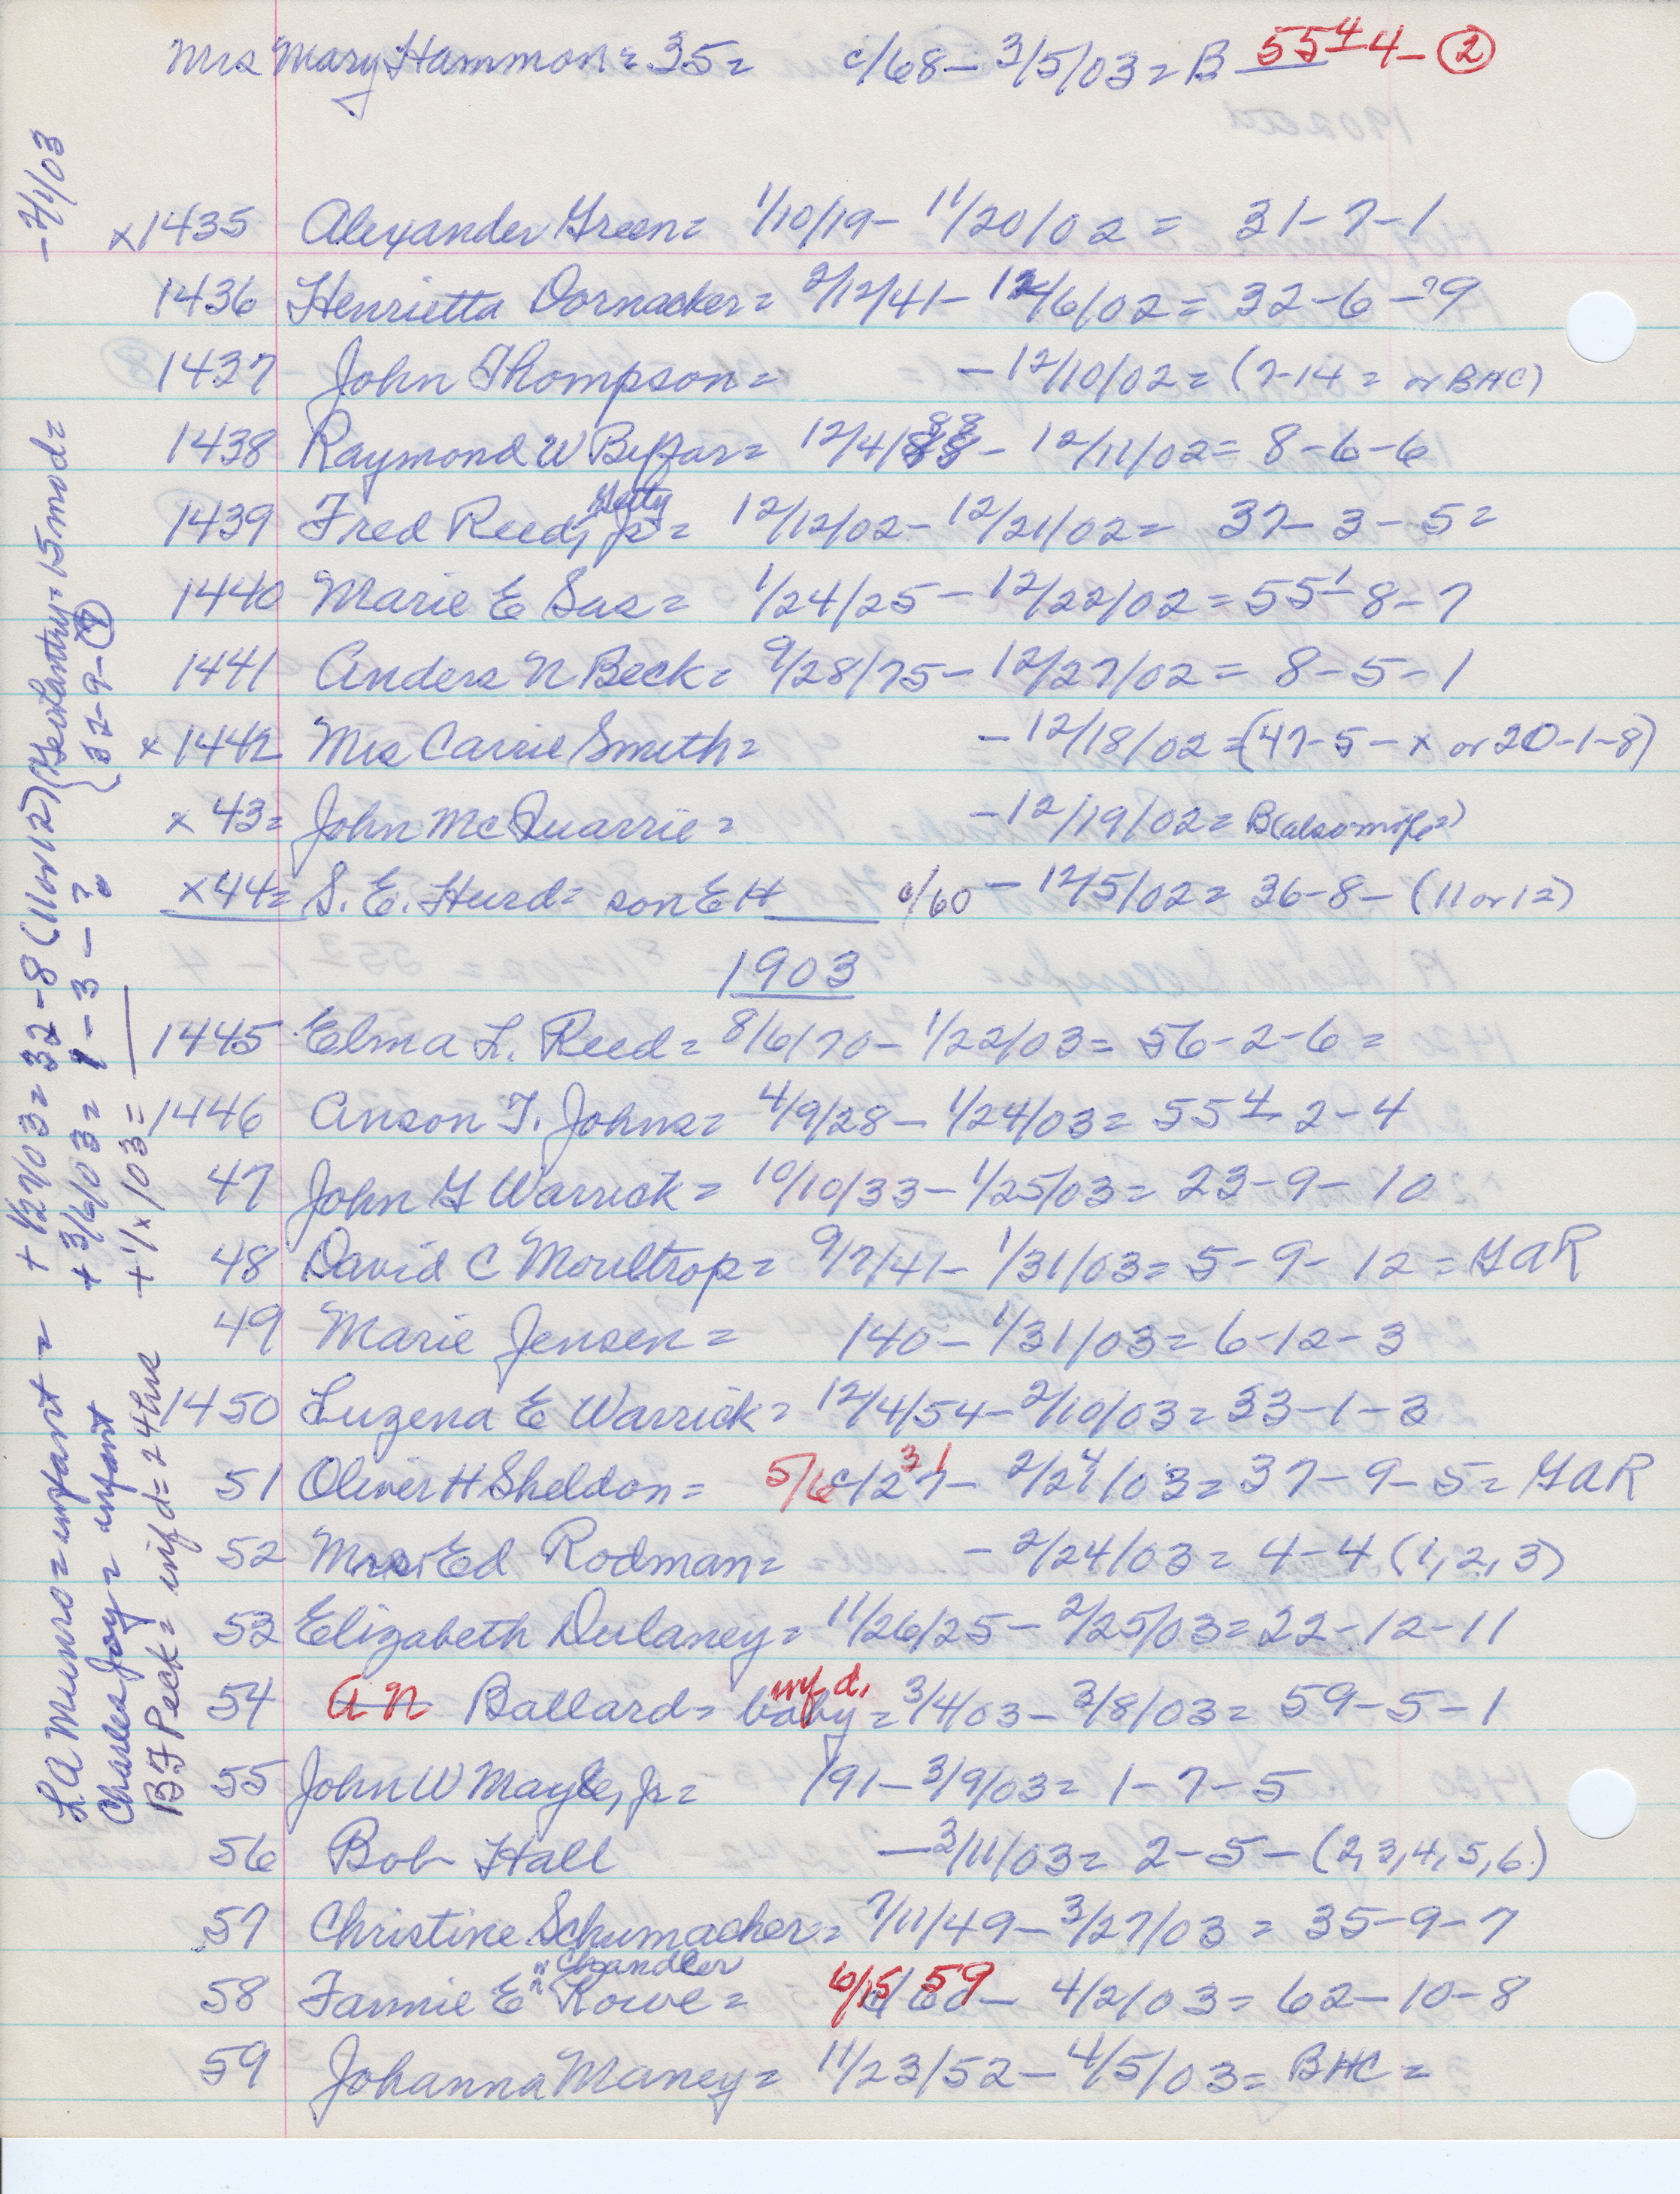 Mrs Mary Hammon = 35 = c/68 - 3/5/03 = B 55 4 4 - 2
x 1435 Alexander Green = 1/10/19 - 11/20/02 = 31-7-1
1436 Henrietta Dornacker = 2/12/41 - 12/6/02 = 32-6-?9
1437 John Thompson = - 12/10/02 = (7-14 = or BHC)
1438 Raymond W = 12/4/88 - 12/11/02 = 8-6-6
1439 Fred Reed, Jr = 12/12/02 - 12/21/02 = 37-3-5 =
1440 Marie E Sas = 1/24/25 - 12/22/02 = 55 1 8-7
1441 Anders N Beck = 9/28/75 - 12/27/02 = 8-5-1
x 1442 Mrs Carrie Smith = - 12/18/02 = (47-5-x or 20-1-8)
x 43 = John McQuarrie = - 12/19/02 = B (also wife =)
x 44 = S. E. Hurd = son E H c/60 - 12/5/02 = 36-8-(11 or 12)
1903
1445 Elma L. Reed = 8/6/70 - 1/22/03 = 56-2-6 =
1446 Anson T. Johns = 4/9/28 - 1/24/03 = 55 4 2-4
47 John G Warrick = 10/10/33 - 1/25/03 = 23-9-10
48 David C Moultrop = 9/7/41 - 1/31/03 = 5-9-12 = GAR
49 Marie Jensen = /40 - 1/31/03 = 6-12-3
1450 Luzena E Warrick = 12/4/54 - 2/10/03 = 33-1-3
51 Oliver H Sheldon = 5/6 c/27 31 - 2/24/03 = 37-9-5 = GAR
52 Mrs Ed Rodman = - 2/24/03 = 4-4 (1, 2, 3)
53 Elizabeth Dulaney = 11/26/25 - 2/25/03 = 22-12-11
54 A N Ballard = baby inf d. = 3/4/03 - 3/8/03 = 59-5-1
55 John W Mayle, Jr = /91 - 3/9/03 = 1-7-5
56 Bob Hall - 3/11/03 = 2-5-(2, 3, 4, 5, 6)
57 Christine Schumacher = 7/11/49 - 3/27/03 = 35-9-7
"Chandler
58 Fannie E" Rowe = 6/15/59 - 4/2/03 = 62-10-8
59 Johanna Maney = 11/23/52 - 4/5/03 = BHC =
L. A Munro = infant = + 1/27/03 = 32-8 (11 or 12) 15 mo d = - 7/1/03
32-9-
Charles Joy = infant + 3/6/03 = 1-3-?
B F Peck = inf d = 24 hrs + 1/x/03 =